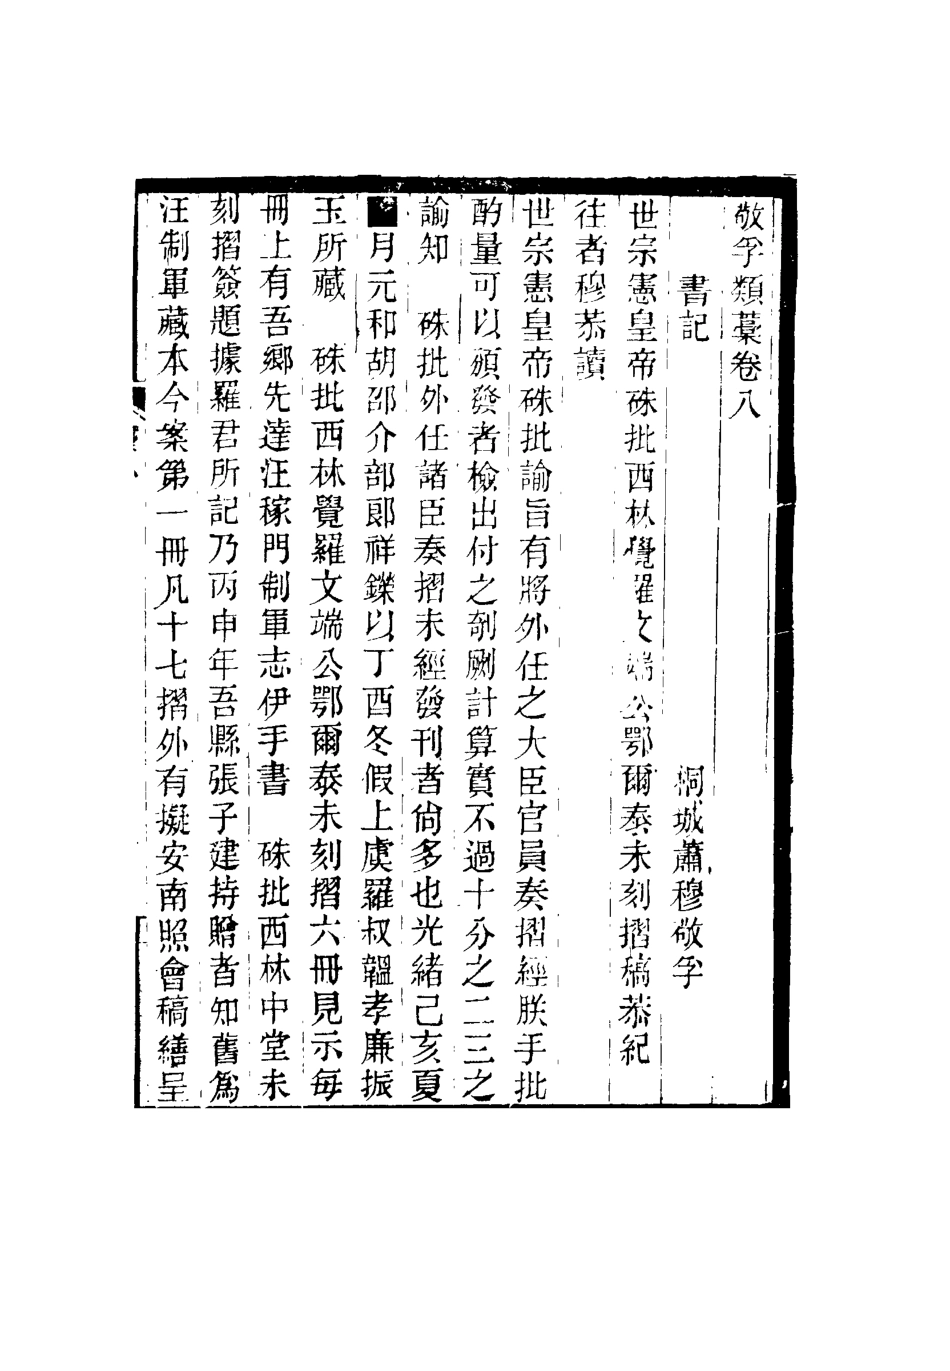 敬孚類藁卷八
書記
桐城蕭穆敬孚
世宗憲皇帝硃批西林覺羅文端公鄂爾泰未刻摺稿恭紀
往者穆恭讀
世宗憲皇帝硃批諭旨有將外任之大臣官員奏摺經朕手批
酌量可以頒發者檢出付之剞劂計算實不過十分之二三之
諭知　硃批外任諸臣奏摺未經發刊者尙多也光緒己亥夏
月元和胡邵介部郞祥鑅以丁酉冬假上虞羅叔韞孝廉振
玉所藏　硃批西林覺羅文端公鄂爾泰未刻摺六冊見示每
冊上有吾鄉先達汪稼門制軍志伊手書　硃批西林中堂未
刻摺簽題據羅君所記乃丙申年吾縣張子建持贈者知舊爲
汪制軍藏本今案第一冊凡十七摺外有擬安南照會稿繕呈